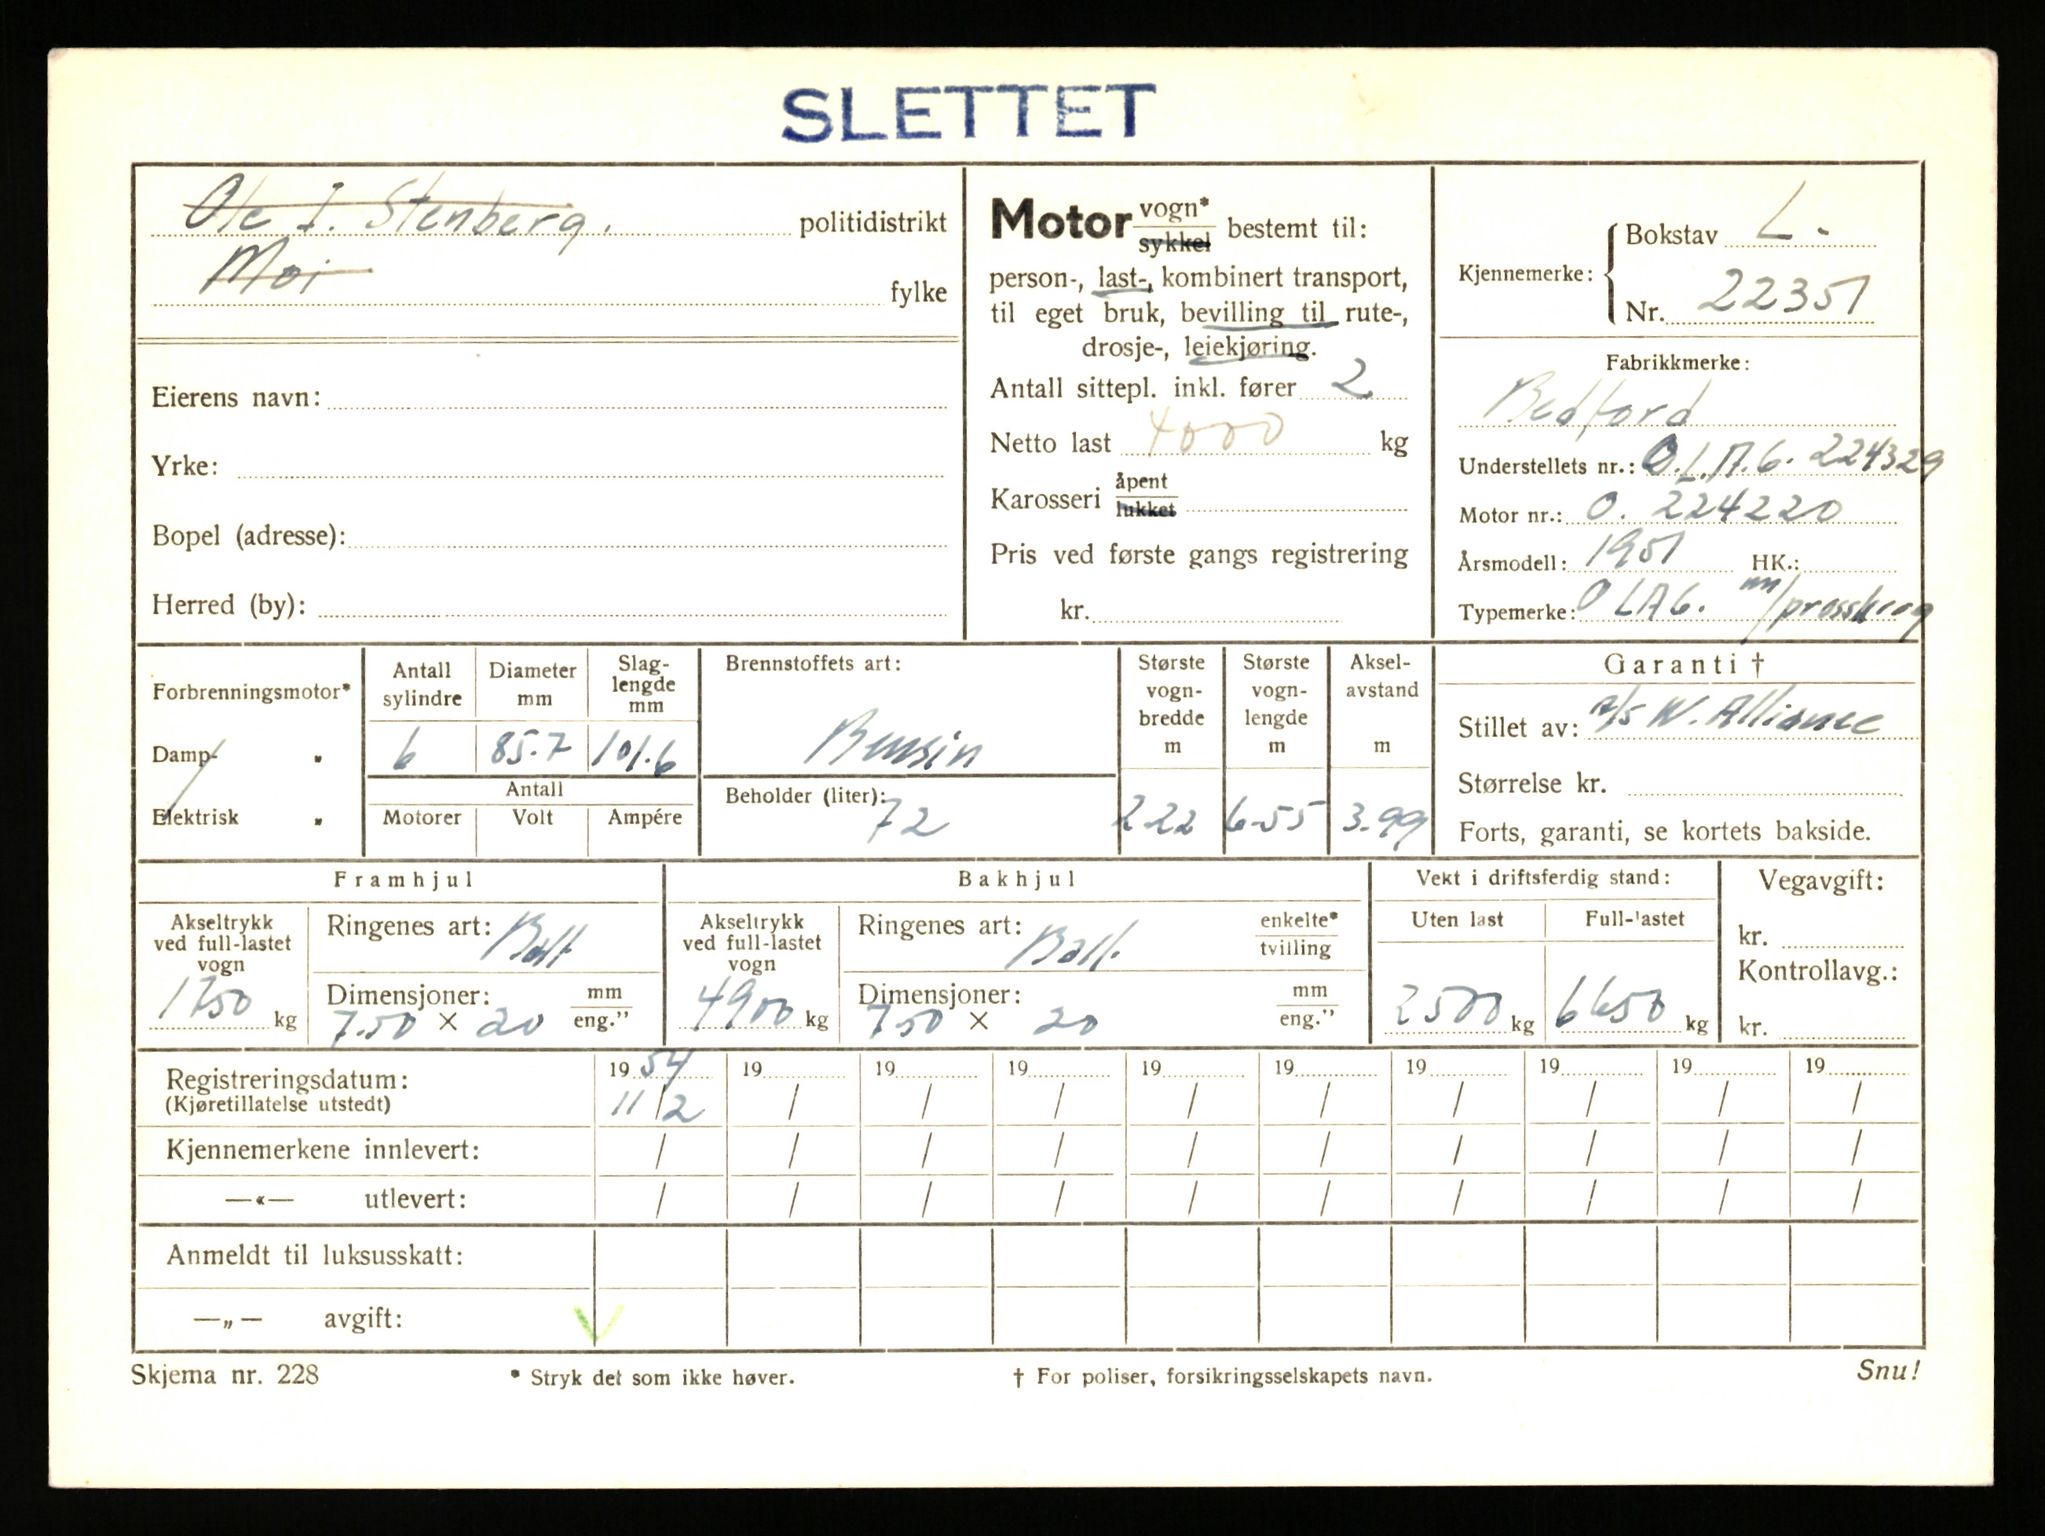 SLETTET
Ole I. Stenberg. politidistrikt
Moi fylke
Eierens navn:
Yrke:
Bopel (adresse):
Herred (by):
Motor vogn* sykkel bestemt til:
person-, last-, kombinert transport,
til eget bruk, bevilling til rute-,
drosje-, leiekjøring.
Antall sittepl. inkl. fører 2
Netto last 4000 kg
Karosseri åpent lukket
Pris ved første gangs registrering
kr.
Kjennemerke: Bokstav L.
Nr. 22351
Fabrikkmerke:
Bedford
Understellets nr.: O.L.A.G. 224329
Motor nr.: O. 224220
Årsmodell: 1951 HK.:
Typemerke: OLAG.
Forbrenningsmotor*
Damp- "
Elektrisk "
Antall sylindre Diameter mm Slag-lengde mm
6 85.7 101.6
Antall
Motorer Volt Ampére
Brennstoffets art:
Bensin
Beholder (liter): 72
Største vogn-bredde m Største vogn-lengde m Aksel-avstand m
2.22 6.55 3.99
Garanti †
Stillet av: A/S N. Alliance
Størrelse kr.
Forts, garanti, se kortets bakside.
Framhjul
Akseltrykk ved full-lastet vogn
1750 kg
Ringenes art: Ball
Dimensjoner: mm eng."
7.50 × 20
Bakhjul
Akseltrykk ved full-lastet vogn
4900 kg
Ringenes art: Ball. enkelte* tvilling
Dimensjoner: mm eng."
750 × 20
Vekt i driftsferdig stand:
Uten last Full-lastet
2500 kg 6650 kg
Vegavgift:
kr.
Kontrollavg.:
kr.
Registreringsdatum: 1954 19 19 19 19 19 19 19 19 19
(Kjøretillatelse utstedt) 11/2 / / / / / / / / /
Kjennemerkene innlevert: / / / / / / / / / /
—«— utlevert: / / / / / / / / / /
Anmeldt til luksusskatt:
—„— avgift:
Skjema nr. 228 * Stryk det som ikke høver. † For poliser, forsikringsselskapets navn. Snu!